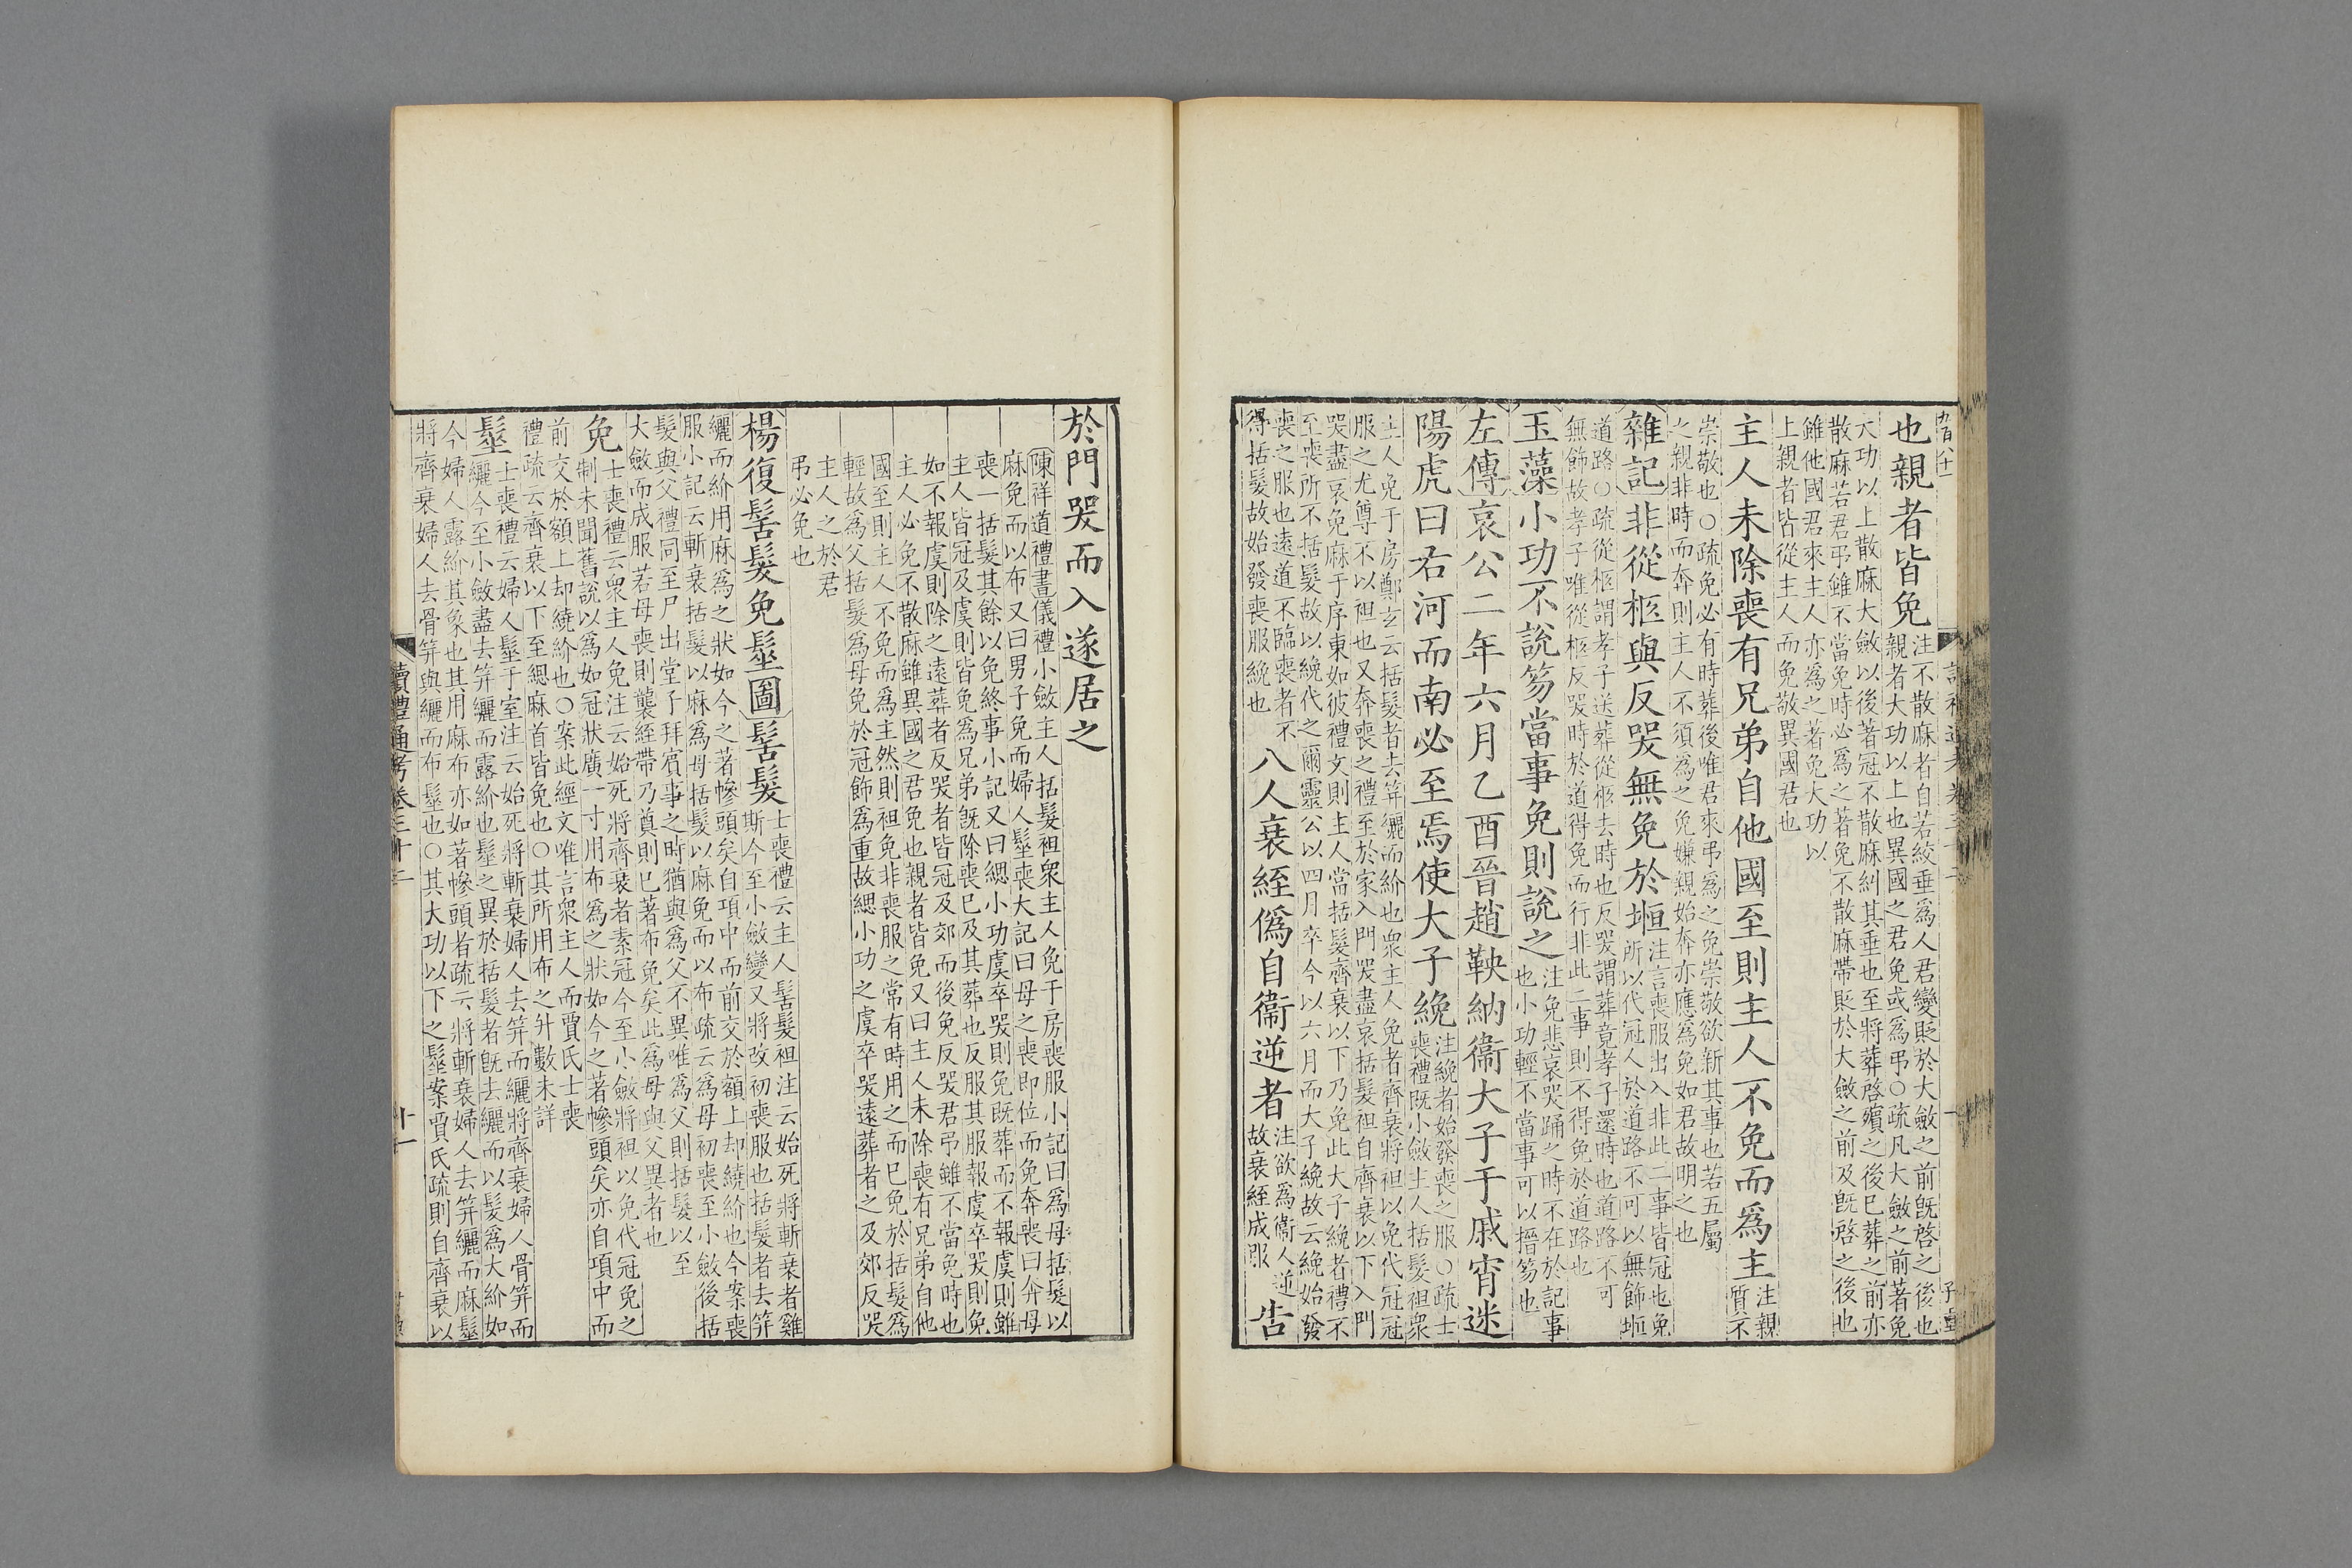 也親者皆免
注不散麻者自若絞垂爲人君變貶於大斂之前既啓之後也
親者大功以上也異國之君免或爲弔○疏凡大斂之前著免
大功以上散麻大斂以後著冠不散麻糾其垂也至將葬啓殯之後已葬之前亦
散麻若君弔雖不當免時必爲之著免不散麻帶貶於大斂之前及既啓之後也
雖他國君來主人亦爲之著免大功以
上親者皆從主人而免敬異國君也
主人未除喪有兄弟自他國至則主人不免而爲主
注親
質不
崇敬也○疏免必有時葬後唯君來弔爲之免崇敬欲新其事也若五屬
之親非時而奔則主人不須爲之免嫌親始奔亦應爲免如君故明之也
雜記非從柩與反哭無免於堩
注言喪服出入非此二事皆冠也免
所以代冠人於道路不可以無飾堩
道路○疏從柩謂孝子送葬從柩去時也反哭謂葬竟孝子還時也道路不可
無飾故孝子唯從柩反哭時於道得免而行非此二事則不得免於道路也
玉藻小功不說笏當事免則說之
注免悲哀哭踊之時不在於記事
也小功輕不當事可以搢笏也
左傳哀公二年六月乙酉晉趙鞅納衞大子于戚宵迷
陽虎曰右河而南必至焉使大子絻
注絻者始發喪之服○疏士
喪禮既小斂主人括髮袒衆
主人免于房鄭玄云括髮者去笄纚而紒也衆主人免者齊衰將袒以免代冠冠
服之尤尊不以袒也又奔喪之禮至於家入門哭盡哀括髮袒自齊衰以下入門
哭盡哀免麻于序東如彼禮文則主人當括髮齊衰以下乃免此大子絻者禮不
至喪所不括髮故以絻代之爾靈公以四月卒今以六月而大子絻故云絻始發
喪之服也遠道不臨喪者不
得括髮故始發喪服絻也
八人衰絰僞自衞逆者
注欲爲衞人逆
故衰絰成服
告
於門哭而入遂居之
陳祥道禮書儀禮小斂主人括髮袒衆主人免于房喪服小記曰爲母括髮以
麻免而以布又曰男子免而婦人髽喪大記曰母之喪即位而免奔喪曰奔母
喪一括髮其餘以免終事小記又曰緦小功虞卒哭則免既葬而不報虞則雖
主人皆冠及虞則皆免爲兄弟既除喪已及其葬也反服其服報虞卒哭則免
如不報虞則除之遠葬者反哭者皆冠及郊而後免反哭君弔雖不當免時也
主人必免不散麻雖異國之君免也親者皆免又曰主人未除喪有兄弟自他
國至則主人不免而爲主然則袒免非喪服之常有時用之而已免於括髮爲
輕故爲父括髮爲母免於冠飾爲重故緦小功之虞卒哭遠葬者之及郊反哭
主人之於君
弔必免也
楊復髺髮免髽圖髺髮
士喪禮云主人髺髮袒注云始死將斬衰者雞
斯今至小斂變又將改初喪服也括髮者去笄
纚而紒用麻爲之狀如今之著幓頭矣自項中而前交於額上却繞紒也今案喪
服小記云斬衰括髮以麻爲母括髮以麻免而以布疏云爲母初喪至小斂後括
髮與父禮同至尸出堂子拜賓事之時猶與爲父不異唯爲父則括髮以至
大斂而成服若母喪則襲絰帶乃奠則已著布免矣此爲母與父異者也
免
士喪禮云衆主人免注云始死將齊衰者素冠今至小斂將袒以免代冠免之
制未聞舊說以爲如冠狀廣一寸用布爲之狀如今之著幓頭矣亦自項中而
前交於額上却繞紒也○案此經文唯言衆主人而賈氏士喪
禮疏云齊衰以下至緦麻首皆免也○其所用布之升數未詳
髽
士喪禮云婦人髽于室注云始死將斬衰婦人去笄而纚將齊衰婦人骨笄而
纚今至小斂盡去笄纚而露紒也髽之異於括髮者既去纚而以髮爲大紒如
今婦人露紒其象也其用麻布亦如著幓頭者疏云將斬衰婦人去笄纚而麻髽
將齊衰婦人去骨笄與纚而布髽也○其大功以下之髽案賈氏疏則自齊衰以
讀禮通考卷三十二
十一